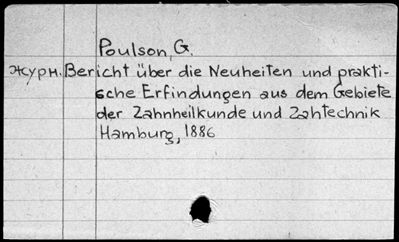 Poulson, G.
Журн. Bericht über die Neuheiten und prakti-
sche Erfindungen aus dem Gebiete
der Zahnheilkunde und Zahtechnik
Hamburg, 1886